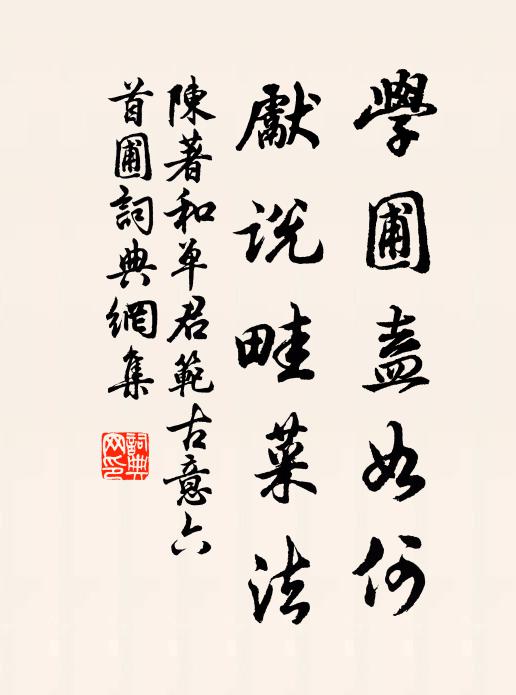 學圃盍如何
獻説畦菜法
陳著和单君範古意六
首圃詞典網集
詞典网印